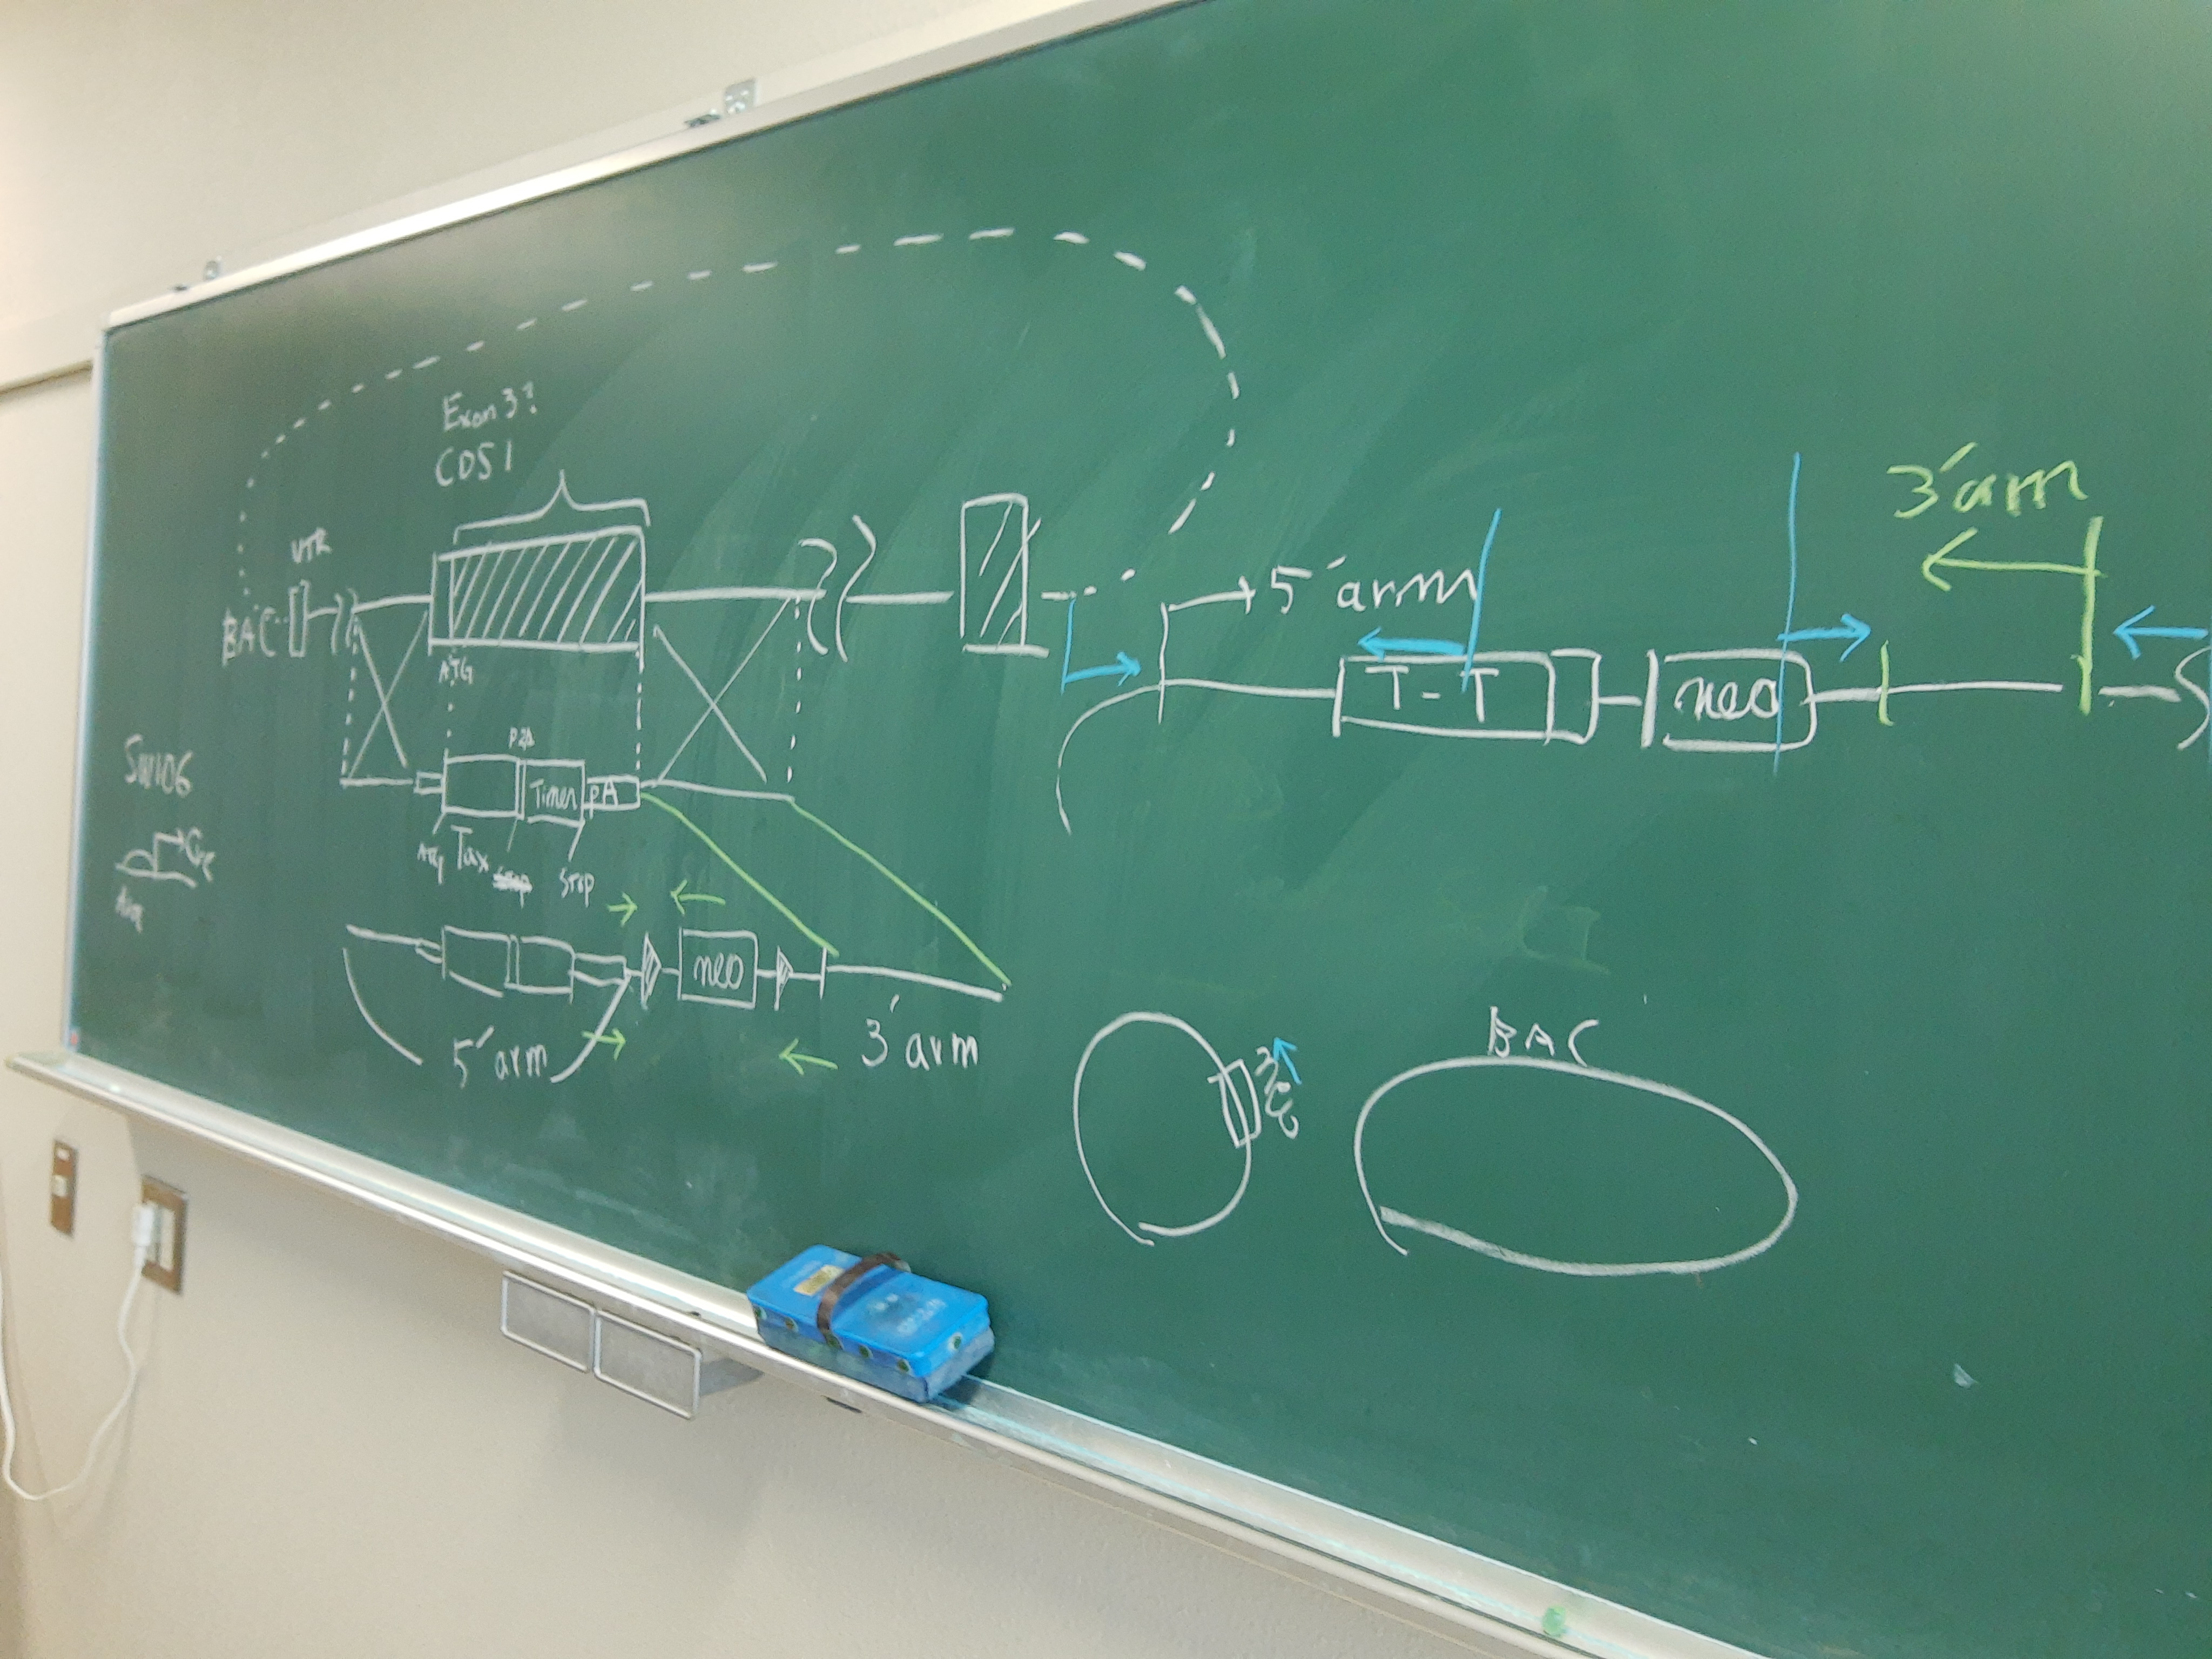 Exon 3?
CDS1
UTR
BAC
ATG
P2A
Timer
pA
ATG
Tax
Stop
SW106
Ara
neo
5′arm
3′arm
5′arm
3′arm
T-T
neo
BAC